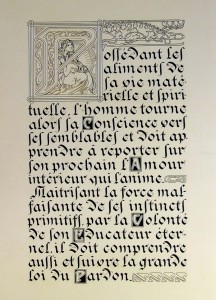 Possédant les
aliments de
sa vie maté
rielle et spiri
tuelle, l'homme tourne
alors sa Conscience vers
ses semblables et doit ap
prendre à reporter sur
son prochain l'Amour
intérieur qui l'anime.
Maîtrisant la force mal-
faisante de ses instincts
primitifs par la Volonté
de son Educateur éter-
nel, il doit comprendre
aussi et suivre la grande
loi du Pardon.